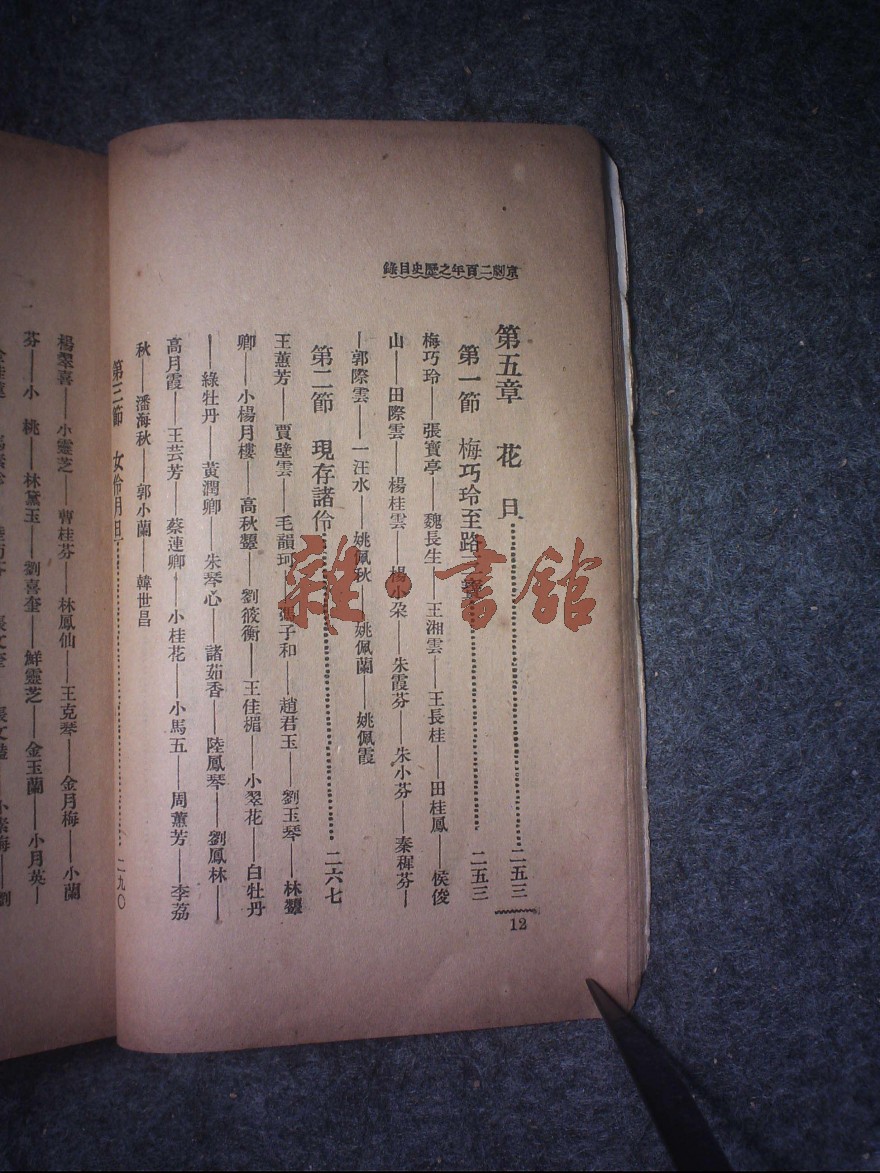 京劇二百年之歷史目錄
第五章 花旦 二五三
第一節 梅巧玲至路三寶 二五三
梅巧玲——張寶亭——魏長生——王湘雲——王長桂——田桂鳳——侯俊
山——田際雲——楊桂雲——楊小朶——朱霞芬——朱小芬——秦稚芬—
—郭際雲——一汪水——姚佩秋——姚佩蘭——姚佩霞
第二節 現存諸伶 二六七
王蕙芳——賈璧雲——毛韻珂——馮子和——趙君玉——劉玉琴——林顰
卿——小楊月樓——高秋顰——劉筱衡——王佳楣——小翠花——白牡丹
——綠牡丹——黃潤卿——朱琴心——諸茹香——陸鳳琴——劉鳳林——
高月霞——王芸芳——蔡連卿——小桂花——小馬五——周薰芳——李荔
秋——潘海秋——郭小蘭——韓世昌
第三節 女伶月旦 二九〇
12
楊翠喜——小靈芝——曹桂芬——林鳳仙——王克琴——金月梅——小蘭
芬——小桃——林黛玉——劉喜奎——鮮靈芝——金玉蘭——小月英—
雜·書館